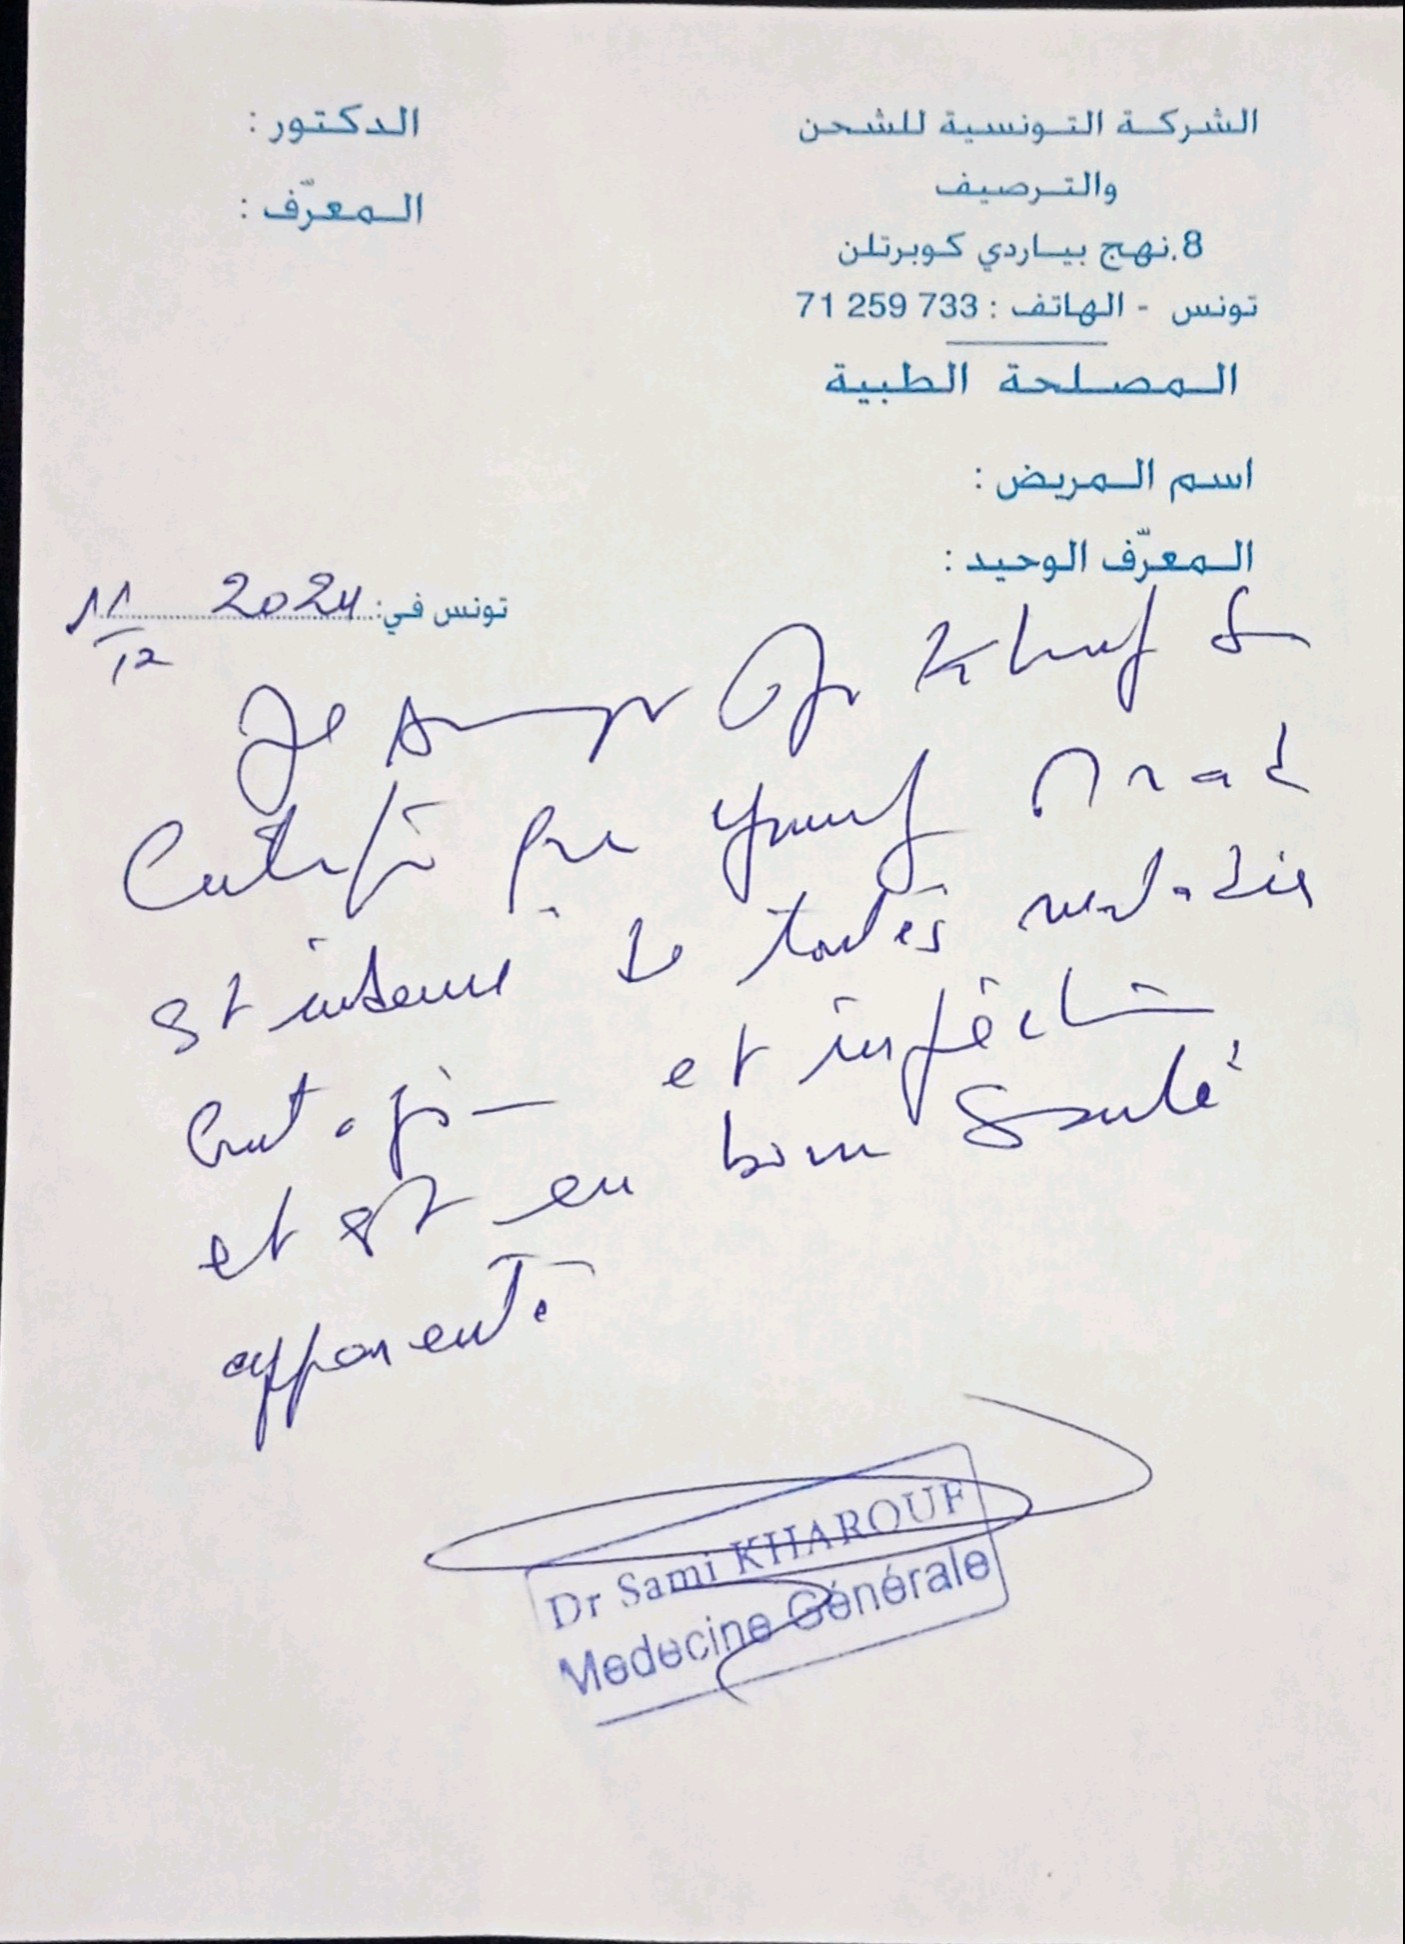 الشركة التونسية للشحن
والترصيف
8.نهج بياردي كوبرتلن
تونس - الهاتف : 733 259 71
المصلحة الطبية
الدكتور :
المعرّف :
اسم المريض :
المعرّف الوحيد :
تونس في: 11/12 2024
Je Dr
Certifie que
est indemne de toutes maladies
contagion et infection
et est en bonne Santé
apparente
Dr Sami KHAROUF
Medecine Générale